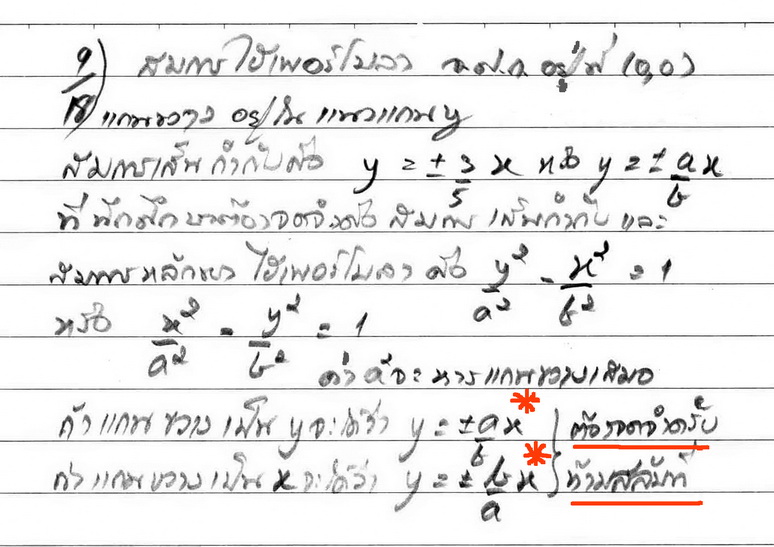 9/18) สมการไฮเพอร์โบลา จ.ศ.ก. อยู่ที่ (0,0)
แกนขวาง อยู่ใน แนวแกน y
สมการเส้นกำกับคือ y = ± 3/5 x หรือ y = ± a/b x
ที่นักศึกษาต้องจดจำคือ สมการ เส้นกำกับ และ
สมการหลักของ ไฮเพอร์โบลา คือ y²/a² - x²/b² = 1
หรือ x²/a² - y²/b² = 1
ค่า a² จะ หารแกนขวางเสมอ
ถ้า แกน ขวาง เป็น y จะได้ว่า y = ± a/b x * ต้องจดจำครับ
ถ้า แกนขวาง เป็น x จะได้ว่า y = ± b/a x * ห้ามสลับที่